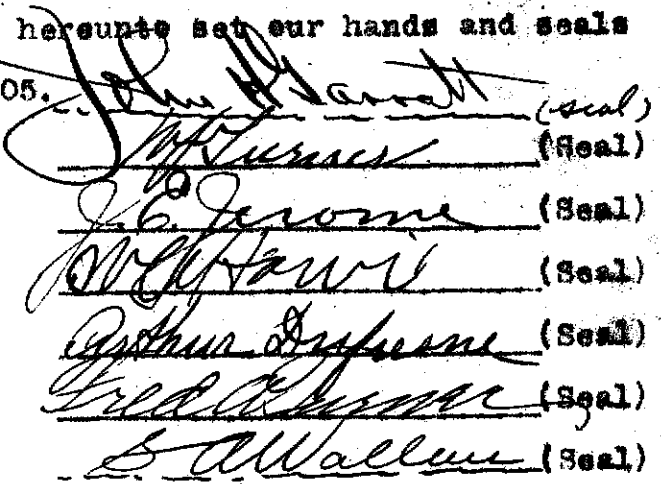 hereunto set our hands and seals
05. John H Garratt (seal)
Turner (Seal)
J. C. Jerome (Seal)
(Seal)
Arthur (Seal)
Fred A Turner (Seal)
A Wallace (Seal)